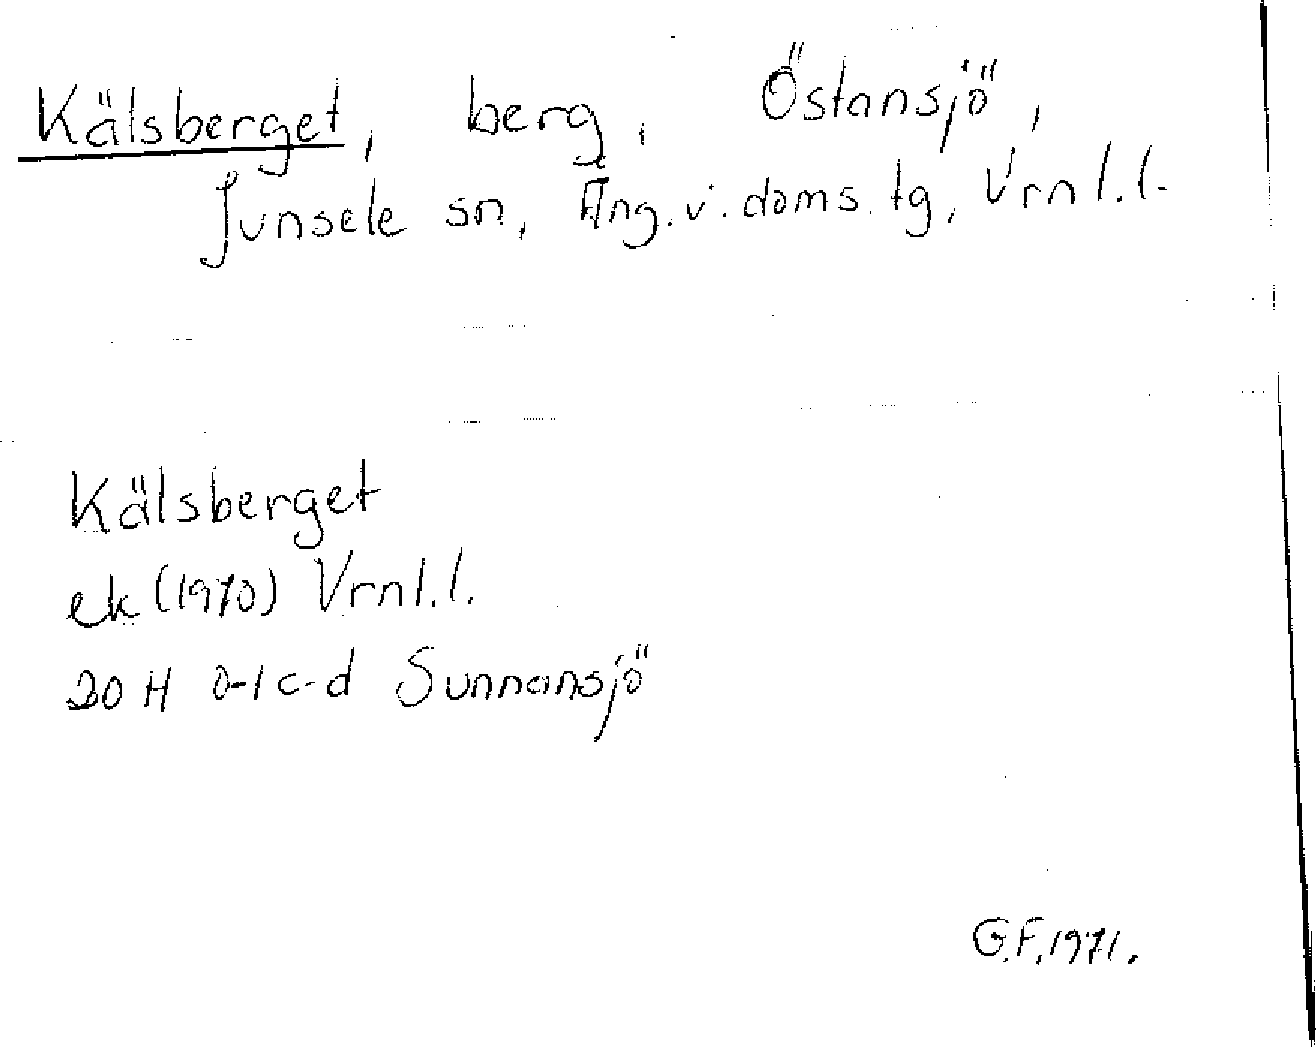 Kälsberget, berg, Östansjö,
Junsele sn, Ång. v. doms. tg, Vrnl. l.
Kälsberget
ek (1970) Vrnl. l.
20 H 0-1 c-d Sunnansjö
G.F. 1971.